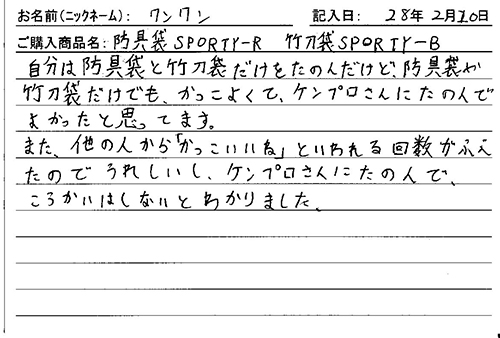 お名前(ニックネーム): ワンワン 記入日: 28年2月10日
ご購入商品名: 防具袋SPORTY-R 竹刀袋SPORTY-B
自分は防具袋と竹刀袋だけをたのんだけど、防具袋や
竹刀袋だけでも、かっこよくて、ケンプロさんにたのんで
よかったと思ってます。
また、他の人から「かっこいいね」といわれる回数がふえ
たのでうれしいし、ケンプロさんにたのんで、
こうかいはしないとわかりました。